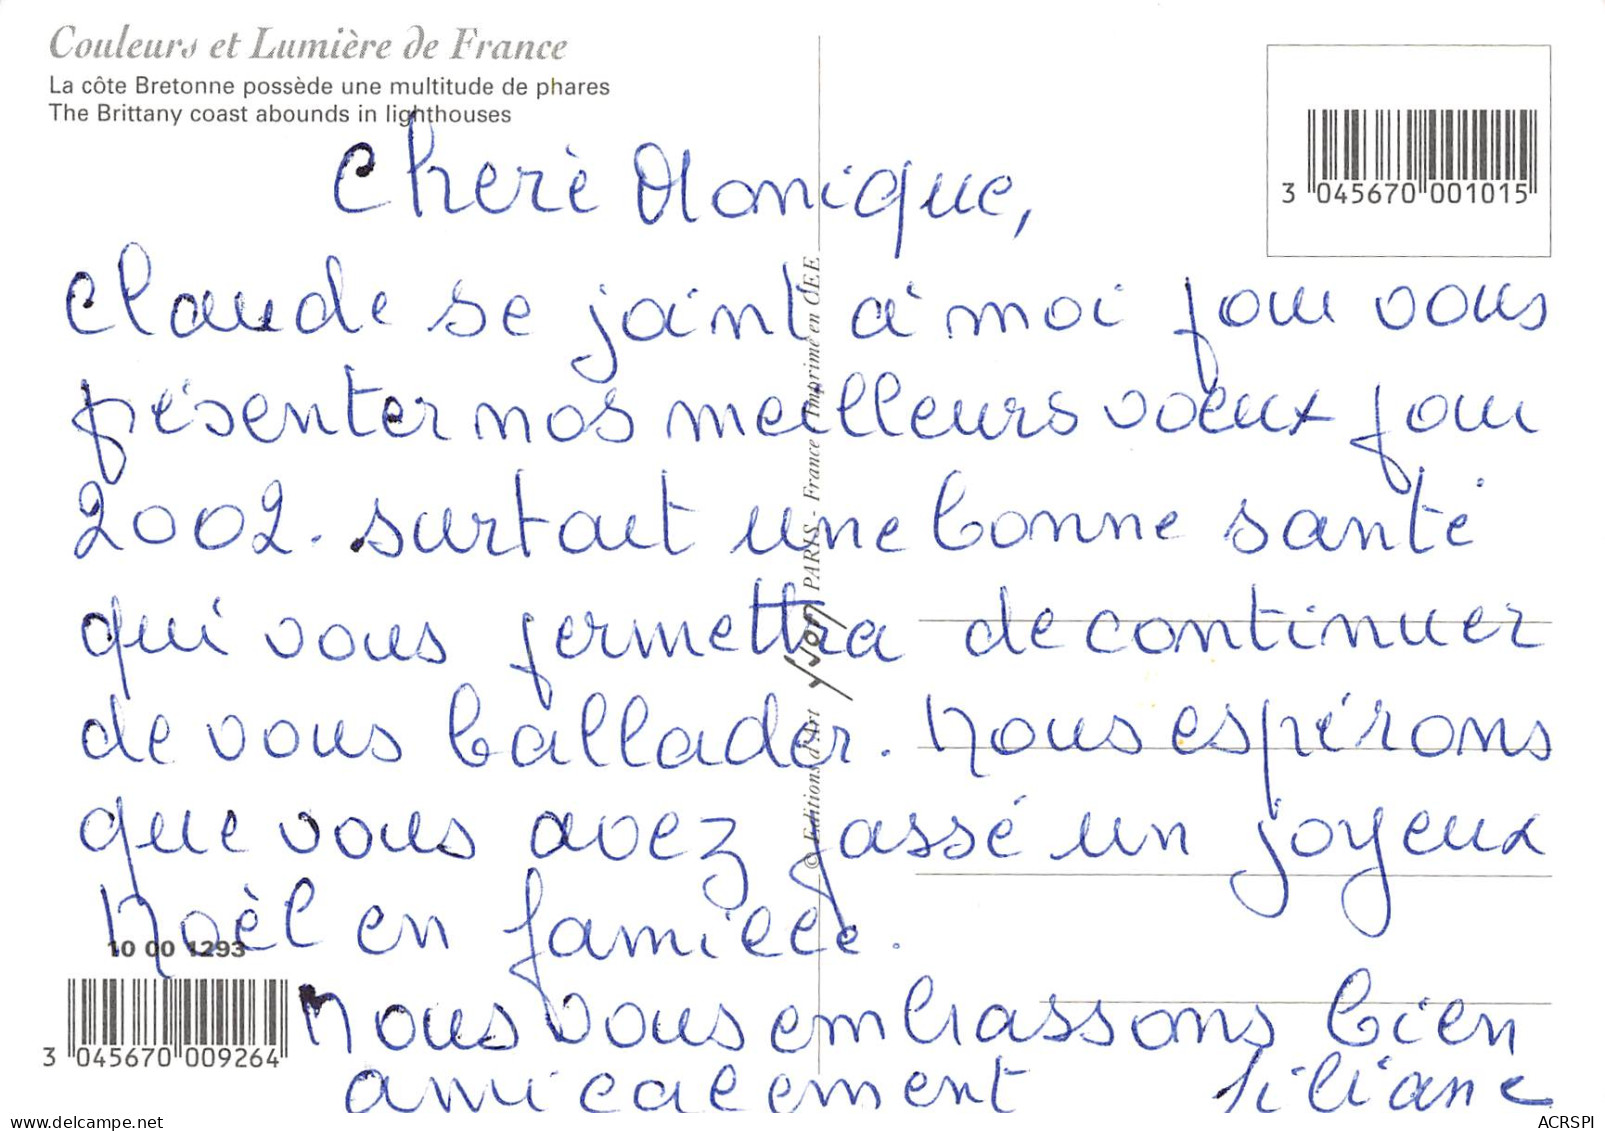 Couleurs et Lumière de France
La côte Bretonne possède une multitude de phares
The Brittany coast abounds in lighthouses
3 045670 001015
Cherè Monique,
Claude se joint à moi pour vous
présenter nos meilleurs voeux pour
2002. surtout une bonne santé
qui vous permettra de continuer
de vous ballader. Nous espérons
que vous avez passé un joyeux
Noèl en famille.
Nous vous embrassons bien
amicalement Liliane
© Editions d'Art yvon PARIS - France - Imprimé en CEE
10 00 1293
3 045670 009264
delcampe.net
ACRSPI